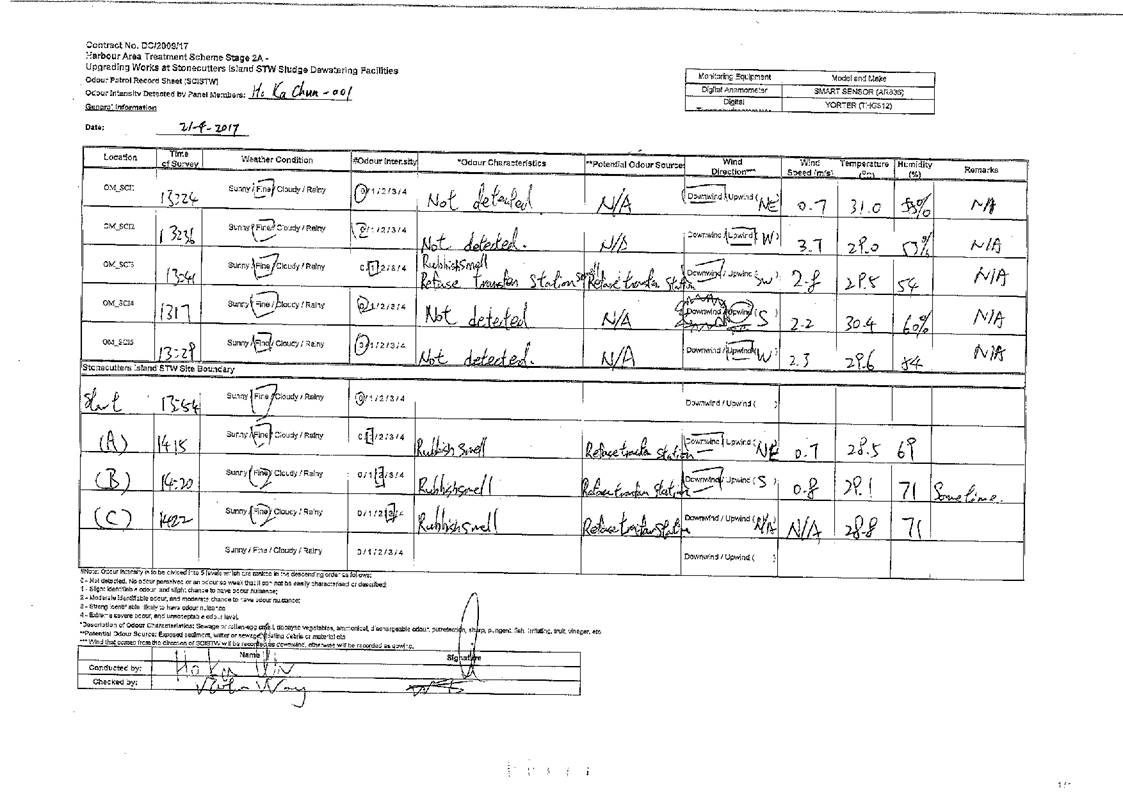 Contract No. DC/2009/17
Harbour Area Treatment Scheme Stage 2A -
Upgrading Works at Stonecutters Island STW Sludge Dewatering Facilities
Odour Patrol Record Sheet (SCISTW)
Odour Intensity Detected by Panel Members: Ho Ka Chun - 001
General Information
Monitoring Equipment Model and Make
Digital Anemometer SMART SENSOR (AR836)
Digital YORTER (THG312)
Date: 21-4-2017
Location Time of Survey Weather Condition #Odour Intensity *Odour Characteristics **Potential Odour Sources Wind Direction*** Wind Speed (m/s) Temperature (°C) Humidity (%) Remarks
OM_SCI1 13:24 Sunny / Fine / Cloudy / Rainy 0/1/2/3/4 Not detected N/A Downwind / Upwind (NE) 0.7 31.0 53% N/A
OM_SCI2 13:36 Sunny / Fine / Cloudy / Rainy 0/1/2/3/4 Not detected. N/A Downwind / Upwind (W) 3.7 29.0 57% N/A
OM_SCI3 13:41 Sunny / Fine / Cloudy / Rainy 0/1/2/3/4 Rubbish smell Refuse transfer station smell Refuse transfer station Downwind / Upwind (SW) 2.8 29.5 54 N/A
OM_SCI4 1317 Sunny / Fine / Cloudy / Rainy 0/1/2/3/4 Not detected N/A Downwind / Upwind (S) 2.2 30.4 60% N/A
OM_SCI5 13:29 Sunny / Fine / Cloudy / Rainy 0/1/2/3/4 Not detected. N/A Downwind / Upwind (W) 2.3 29.6 54 N/A
Stonecutters Island STW Site Boundary
Start 13:54 Sunny / Fine / Cloudy / Rainy 0/1/2/3/4 Downwind / Upwind ( )
(A) 1415 Sunny / Fine / Cloudy / Rainy 0/1/2/3/4 Rubbish smell Refuse transfer station Downwind / Upwind (NE) 0.7 28.5 69
(B) 14:20 Sunny / Fine / Cloudy / Rainy 0/1/2/3/4 Rubbish smell Refuse transfer station Downwind / Upwind (S) 0.8 29.1 71 Sometime.
(C) 1422 Sunny / Fine / Cloudy / Rainy 0/1/2/3/4 Rubbish smell Refuse transfer station Downwind / Upwind (N/A) N/A 28.8 71
Sunny / Fine / Cloudy / Rainy 0/1/2/3/4 Downwind / Upwind ( )
#Note: Odour intensity is to be divided into 5 levels which are ranked in the descending order as follows:
0 - Not detected. No odour perceived or an odour so weak that it can not be easily characterised or described;
1 - Slight identifiable odour, and slight chance to have odour nuisance;
2 - Moderate identifiable odour, and moderate chance to have odour nuisance;
3 - Strong identifiable, likely to have odour nuisance
4 - Extreme severe odour, and unacceptable odour level.
*Description of Odour Characteristics: Sewage or rotten-egg smell, decayed vegetables, ammonical, dischargeable odour, putrefaction, sharp, pungent, fish, irritating, fruit, vinegar, etc
**Potential Odour Source: Exposed sediment, water or sewage, floating debris or material etc
*** Wind that comes from the direction of SCISTW will be recorded as downwind, otherwise will be recorded as upwind.
Name Signature
Conducted by:
Checked by:
1/1